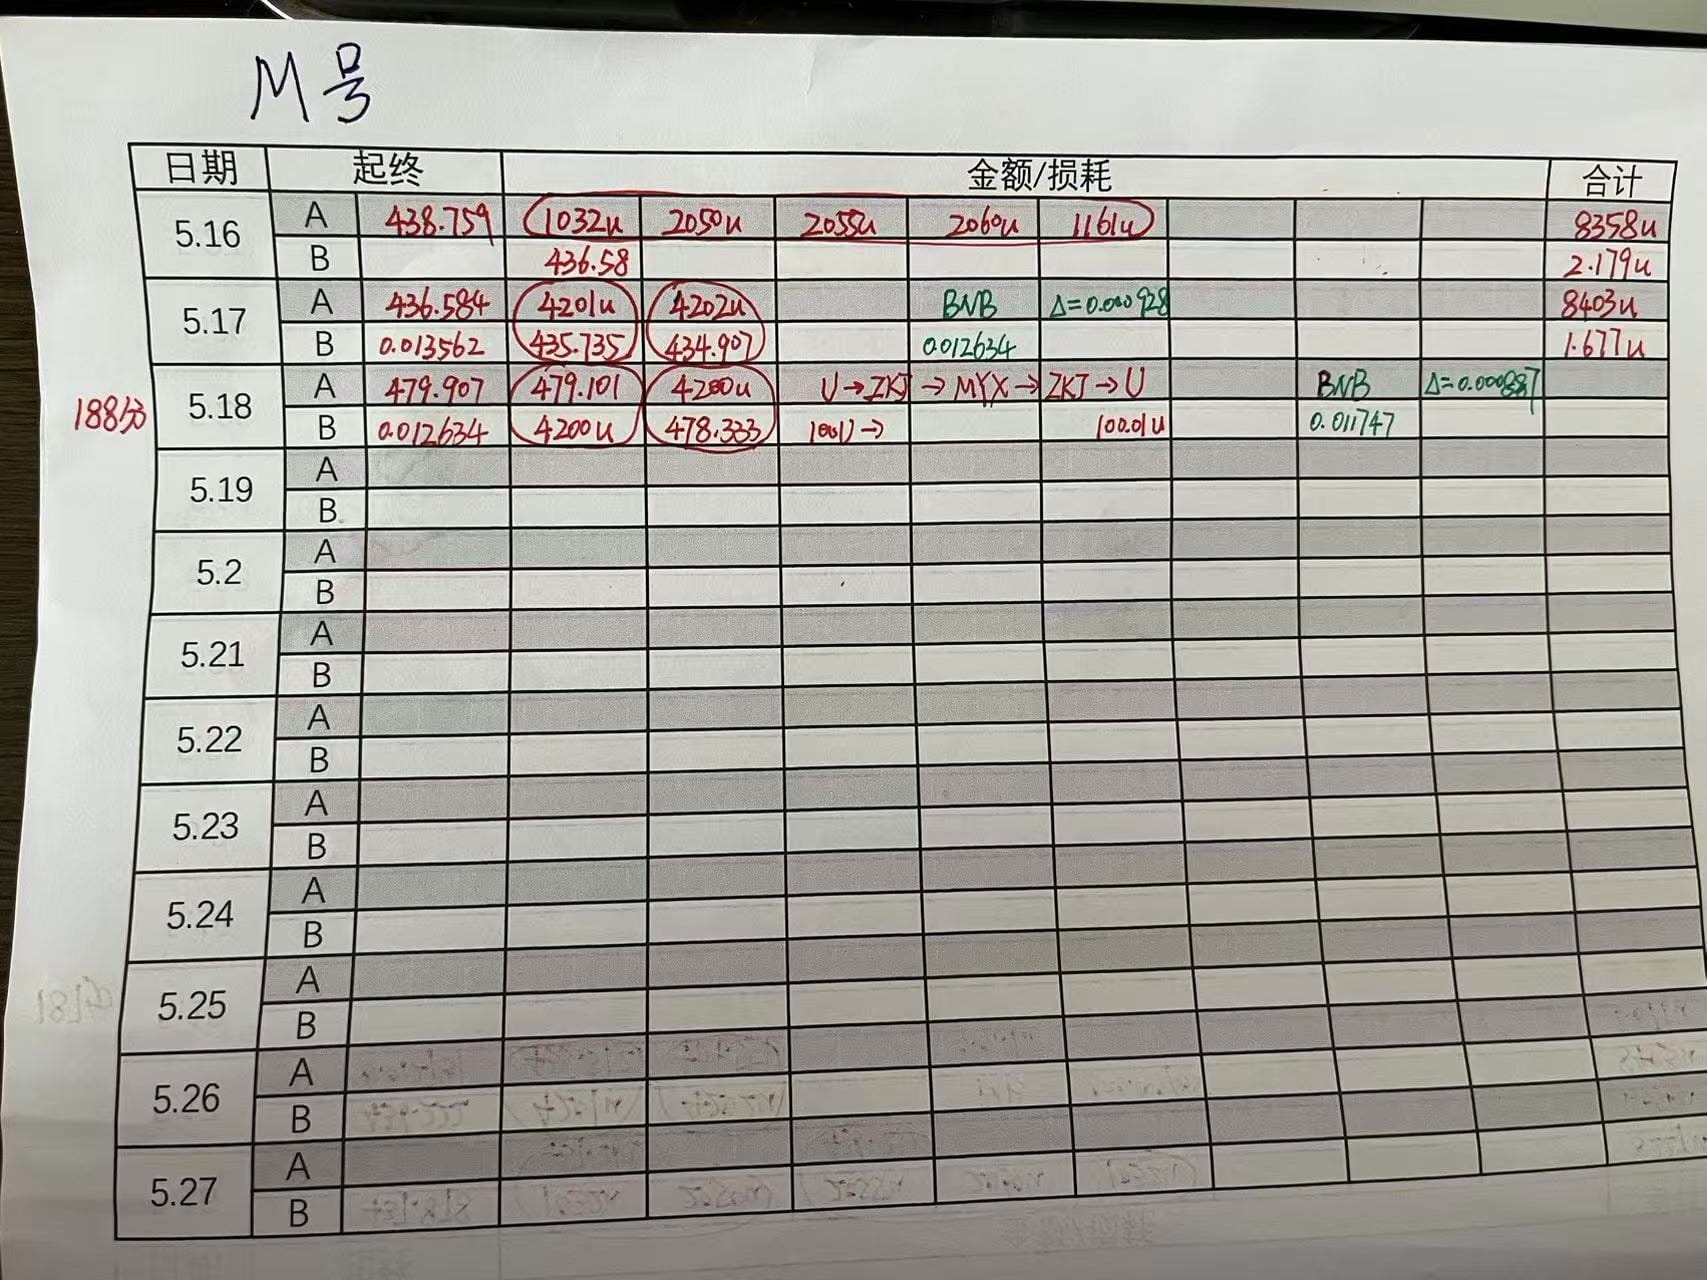 M号
日期 起终 金额/损耗 合计
5.16 A 438.759 1032u 2050u 2055u 2060u 1161u 8358u
B 436.58 2.179u
5.17 A 436.584 4201u 4202u BNB Δ=0.000928 8403u
B 0.013562 435.735 434.907 0.012634 1.677u
188分 5.18 A 479.907 479.101 4200u U→ZKJ→MYX→ZKJ→U BNB Δ=0.000887
B 0.012634 4200u 478.333 100U→ 100.01u 0.011747
5.19 A
B
5.2 A
B
5.21 A
B
5.22 A
B
5.23 A
B
5.24 A
B
5.25 A
B
5.26 A
B
5.27 A
B